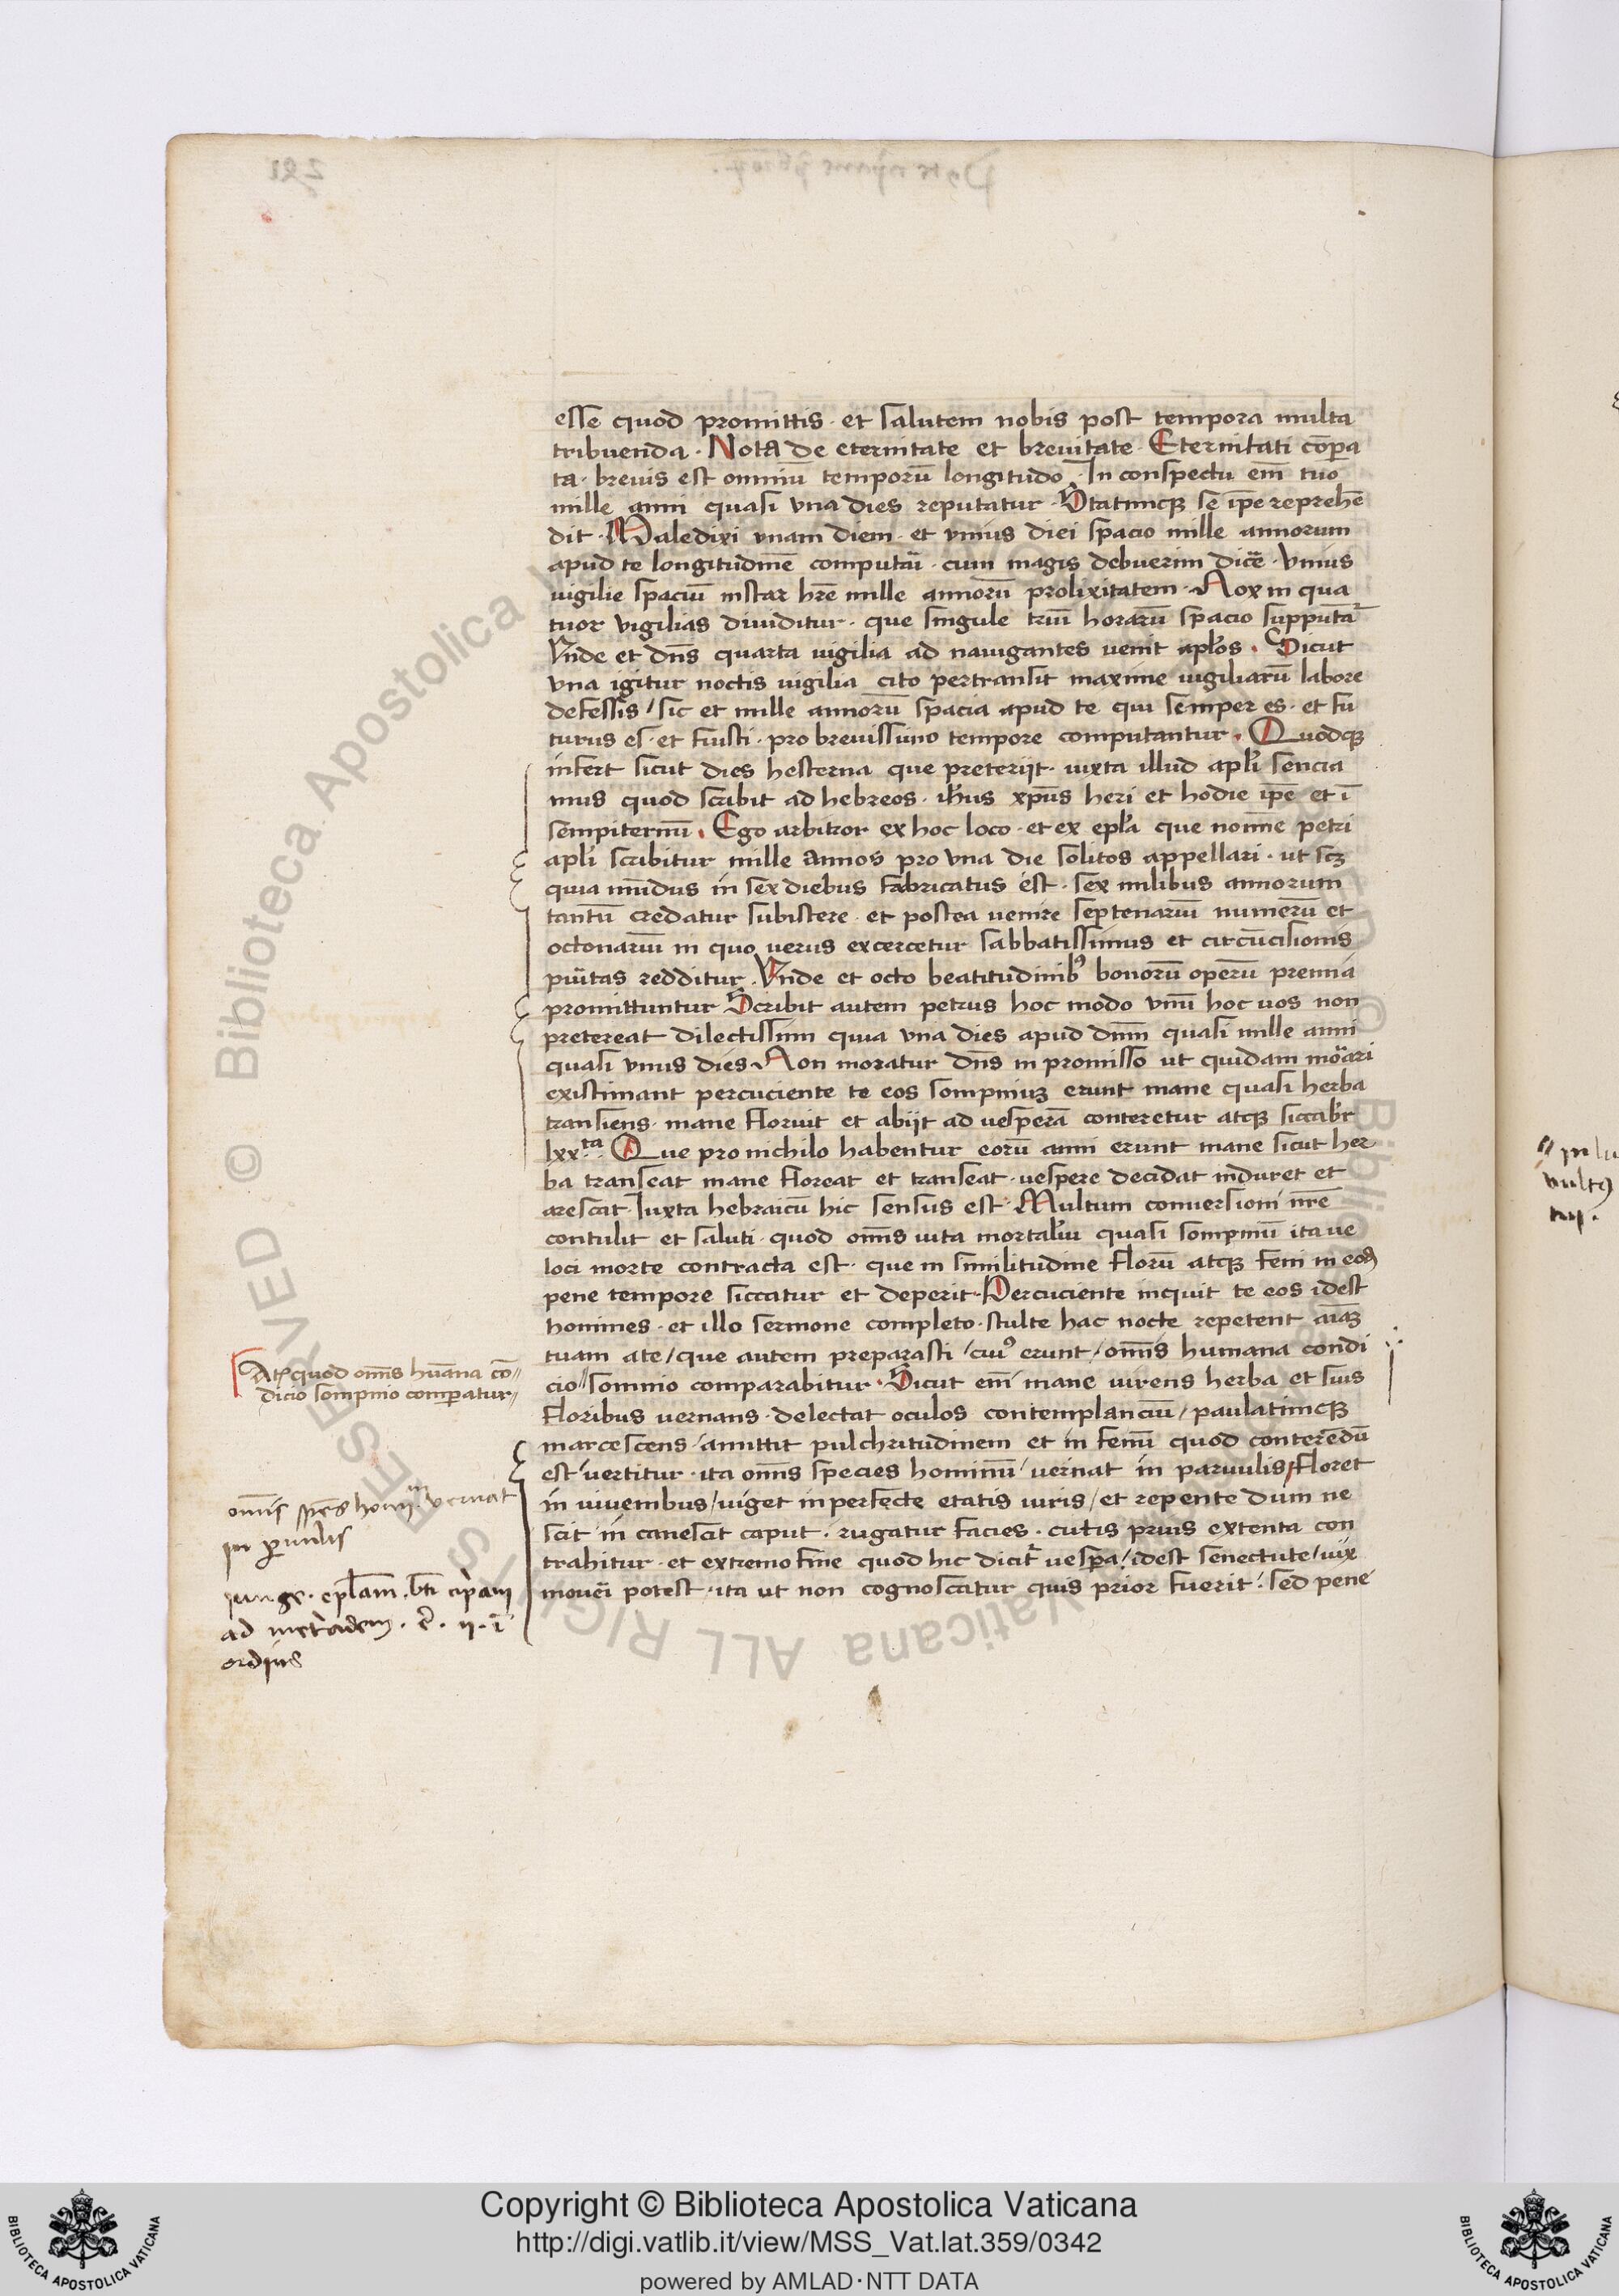 esse quod promittis · et salutem nobis post tempora multa
tribuenda · Nota de eternitate et breuitate · Eternitati co̅pa
ta · breuis est omniu̅ temporu̅ longitudo · In conspectu em̅ tuo
mille anni quasi vna dies reputatur · Statimcq̨ se ip̅e reprehe̅
dit · Male dixi vnam diem · et vnius diei spacio mille annorum
apud te longitudine̅ computaui · cum magis debuerim dice̅ · vnius
vigilie spaciu̅ instar hr̅e mille annoru̅ prolixitatem · Nox in qua
tuor vigilias diuiditur · que singule triu̅ horaru̅ spacio supputa̅t
Vnde et dn̅s quarta vigilia ad nauigantes uenit apl̅os · Sicut
vna igitur noctis vigilia cito pertransit maxime vigiliaru̅ labore
defessis / sic et mille annoru̅ spacia apud te qui semper es · et fu
turus es · et fuisti · pro breuissimo tempore computantur · Quodcq̨
infert sicut dies hesterna que preterijt · iuxta illud apl̅i sencia
mus quod scribit ad hebreos · ih̅us xp̅us heri et hodie ip̅e et i̅
sempiternu̅ · Ego arbitror ex hoc loco · et ex epl̅a que nomi̅e petri
apl̅i scribitur mille annos pro vna die solitos appellari · ut scz
quia mu̅dus in sex diebus fabricatus est · sex milibus annorum
tantu̅ credatur subistere · et postea uenire septenariu̅ numeru̅ et
octonariu̅ in quo verus excercetur sabbatissimus et circu̅cisionis
pu̅itas redditur · Vnde et octo beatitudinib9 bonoru̅ operu̅ premia
promittuntur Scribit autem petrus hoc modo vnu̅ hoc uos non
pretereat dilectissimi quia vna dies apud dn̅m quasi mille anni
quasi vnus dies · Non moratur dn̅s in promisso ut quidam mo̅ari
existimant percuciente te eos sompniuz erunt mane quasi herba
transiens · mane floruit et abijt ad uespera̅ conteretur atcq̨ siccab̅r
lxxta · Que pro nichilo habentur eoru̅ anni erunt mane sicut her
ba transeat mane floreat et transeat · uespere decidat induret et
arescat Iuxta hebraicu̅ hic sensus est · Multum conuersioni nr̅e
contulit et saluti · quod om̅s uita mortaliu̅ quasi sompniu̅ ita ue
loci morte contracta est · que in similitudine floru̅ atcq̨ feni in eod̅
pene tempore siccatur et deperit · Percuciente inquit te eos idest
homines · et illo sermone completo · stulte hac nocte repetent ai̅az
tuam a te / que autem preparasti / cui9 erunt / om̅is humana condi
cio / somnio comparabitur · Sicut em̅ mane uirens herba et suis
floribus uernans · delectat oculos contemplanciu̅ / paulatimcq̨
marcescens / amittit pulchritudinem et in fenu̅ quod contere̅du̅
est / uertitur · ita om̅s species hominu̅ / uernat in paruulis / floret
in iuuenibus / uiget in perfecte etatis uiris / et repente dum ne
scit in canescit caput · rugatur facies · cutis prius extenta con
trahitur · et extremo fine quod hic dicit̅ uesp̅a / idest senectute / uix
moue̅i potest · ita ut non cognoscatur quis prior fuerit · sed pene
At quod om̅s hu̅ana co̅
dicio sompnio comp̅atur
om̅is sp̅es homi̅m vernat
in p̅uulis
iunge · epl̅am · bt̅i cip̅ani
ad · ij · i̅